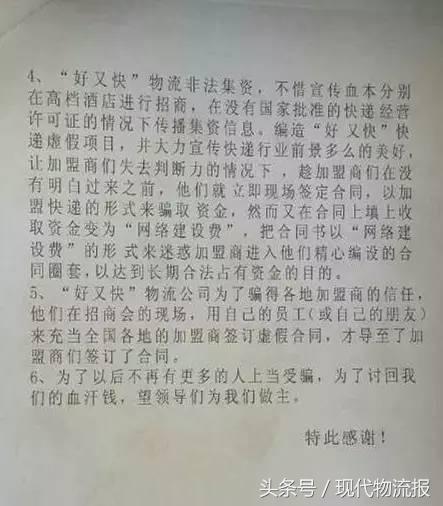 4、“好又快”物流非法集资，不惜宣传血本分别
在高档酒店进行招商，在没有国家批准的快递经营
许可证的情况下传播集资信息。编造“好又快”快
递虚假项目，并大力宣传快递行业前景多么的美好，
让加盟商们失去判断力的情况下，趁加盟商们在没
有明白过来之前，他们就立即现场签定合同，以加
盟快递的形式来骗取资金，然而又在合同上填上收
取资金变为“网络建设费”，把合同书以“网络建
设费”的形式来迷惑加盟商进入他们精心编设的合
同圈套，以达到长期合法占有资金的目的。
5、“好又快”物流公司为了骗得各地加盟商的信任，
他们在招商会的现场，用自己的员工(或自己的朋友)
来充当全国各地的加盟商签订虚假合同，才导至了加
盟商们签订了合同。
6、为了以后不再有更多的人上当受骗，为了讨回我
们的血汗钱，望领导们为我们做主。
特此感谢！
头条号/现代物流报